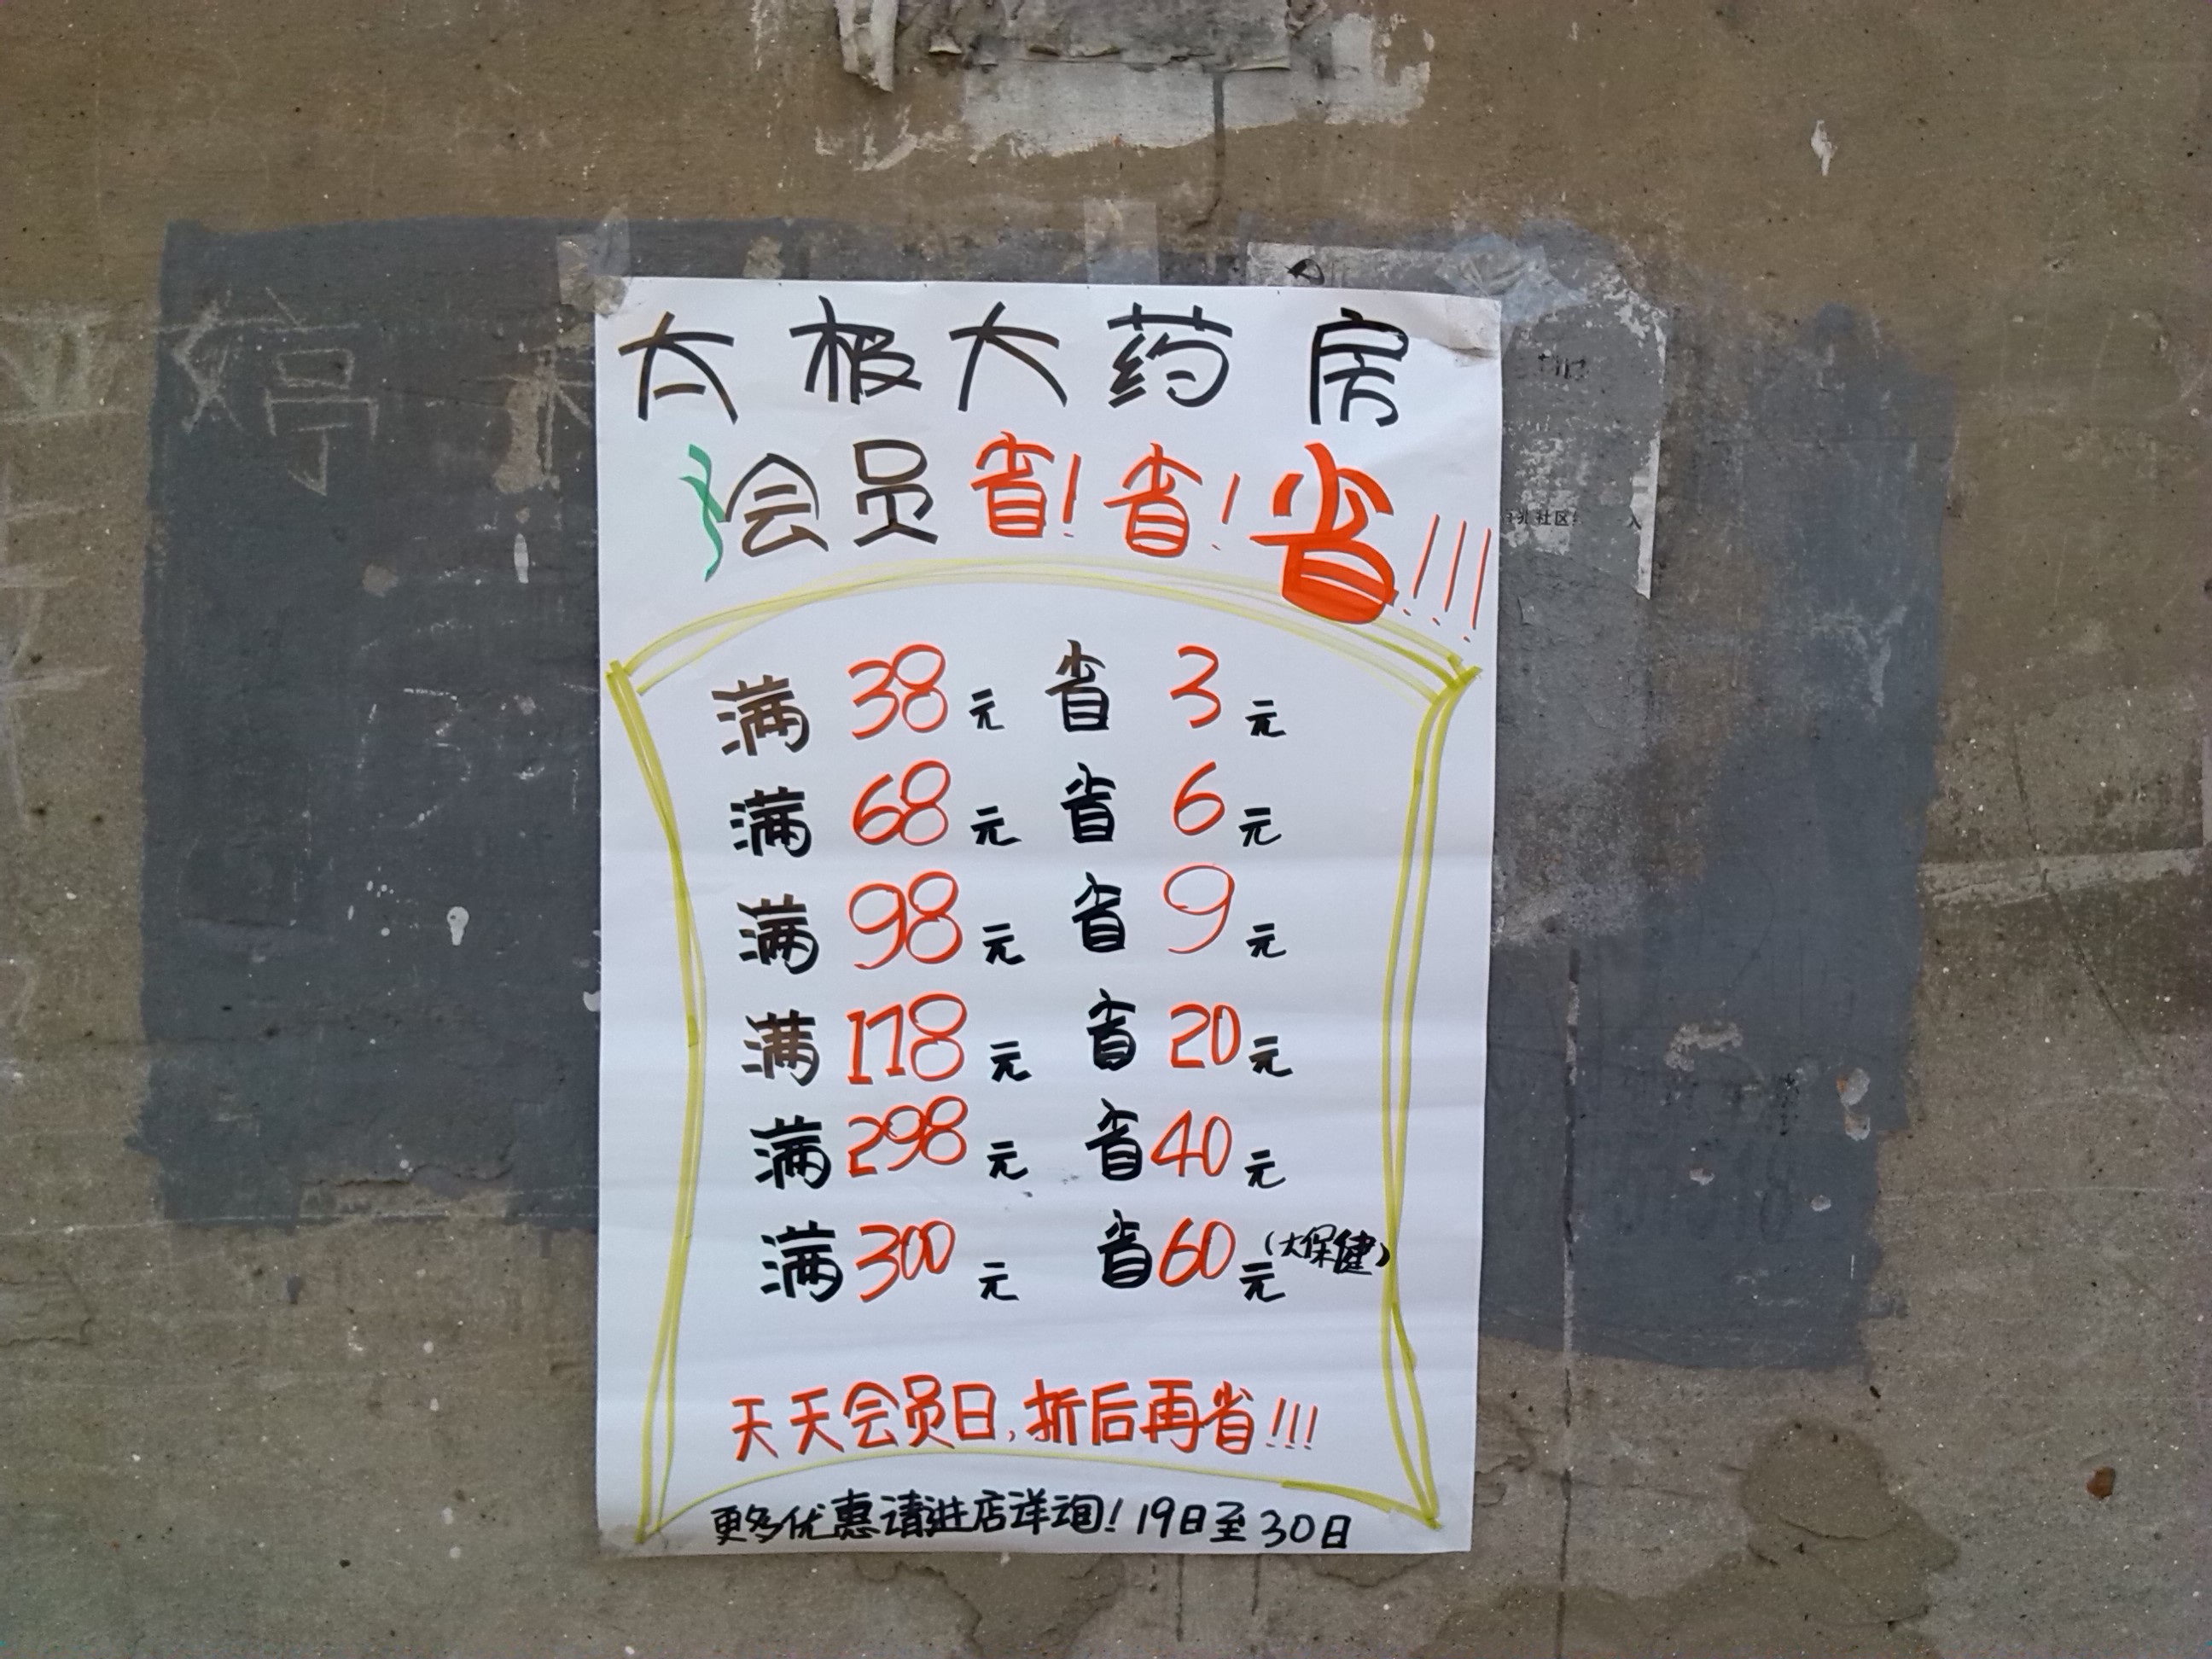 太极大药房
会员省！省！省！！！
满38元 省3元
满68元 省6元
满98元 省9元
满178元 省20元
满298元 省40元
满300元 省60元（大保健）
天天会员日，折后再省！！！
更多优惠请进店详询！19日至30日
婷
社区